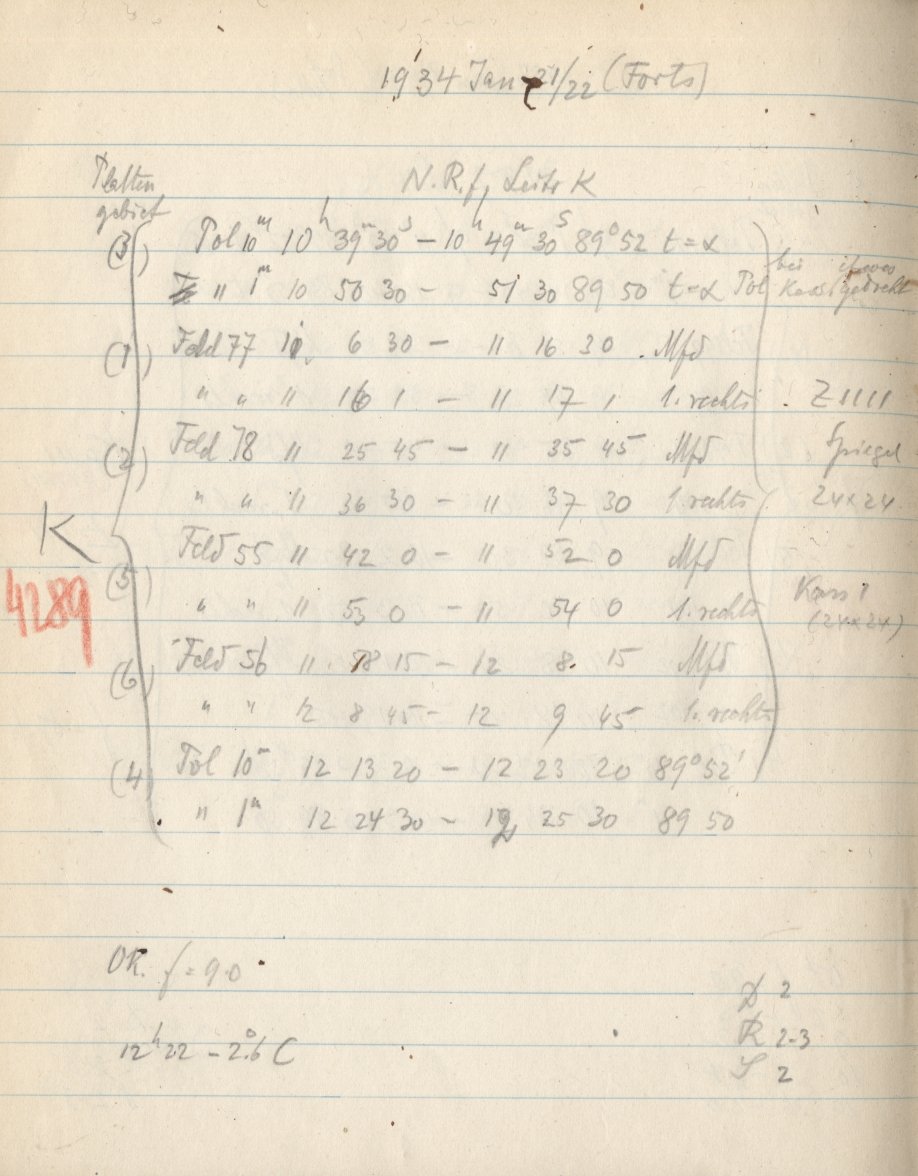 1934 Jan 21/22 (Forts)
Platten
gebiet
N.R.f, Seite K
(3) Pol 10ᵐ 10ʰ 39ᵐ 30ˢ – 10ʰ 49ᵐ 30ˢ 89° 52 t=α
" 1ᵐ 10 50 30 – 51 30 89 50 t=α Pol
bei
Kass gedreht
(1) Feld 77 11 6 30 – 11 16 30 Mfd
" " 11 16 1 – 11 17 1 1. rechts
Z 1111
(2) Feld 78 11 25 45 – 11 35 45 Mfd
Spiegel
" " 11 36 30 – 11 37 30 1. rechts
24×24
K
4289
(5) Feld 55 11 42 0 – 11 52 0 Mfd
" " 11 53 0 – 11 54 0 1. rechts
Kass 1
(24×24)
(6) Feld 56 11 58 15 – 12 8 15 Mfd
" " 12 8 45 – 12 9 45 1. rechts
(4) Pol 10ᵐ 12 13 20 – 12 23 20 89° 52'
" 1ᵐ 12 24 30 – 12 25 30 89 50
OK. f = 9.0
12ʰ 22 – 2°.6 C
D 2
R 2-3
S 2